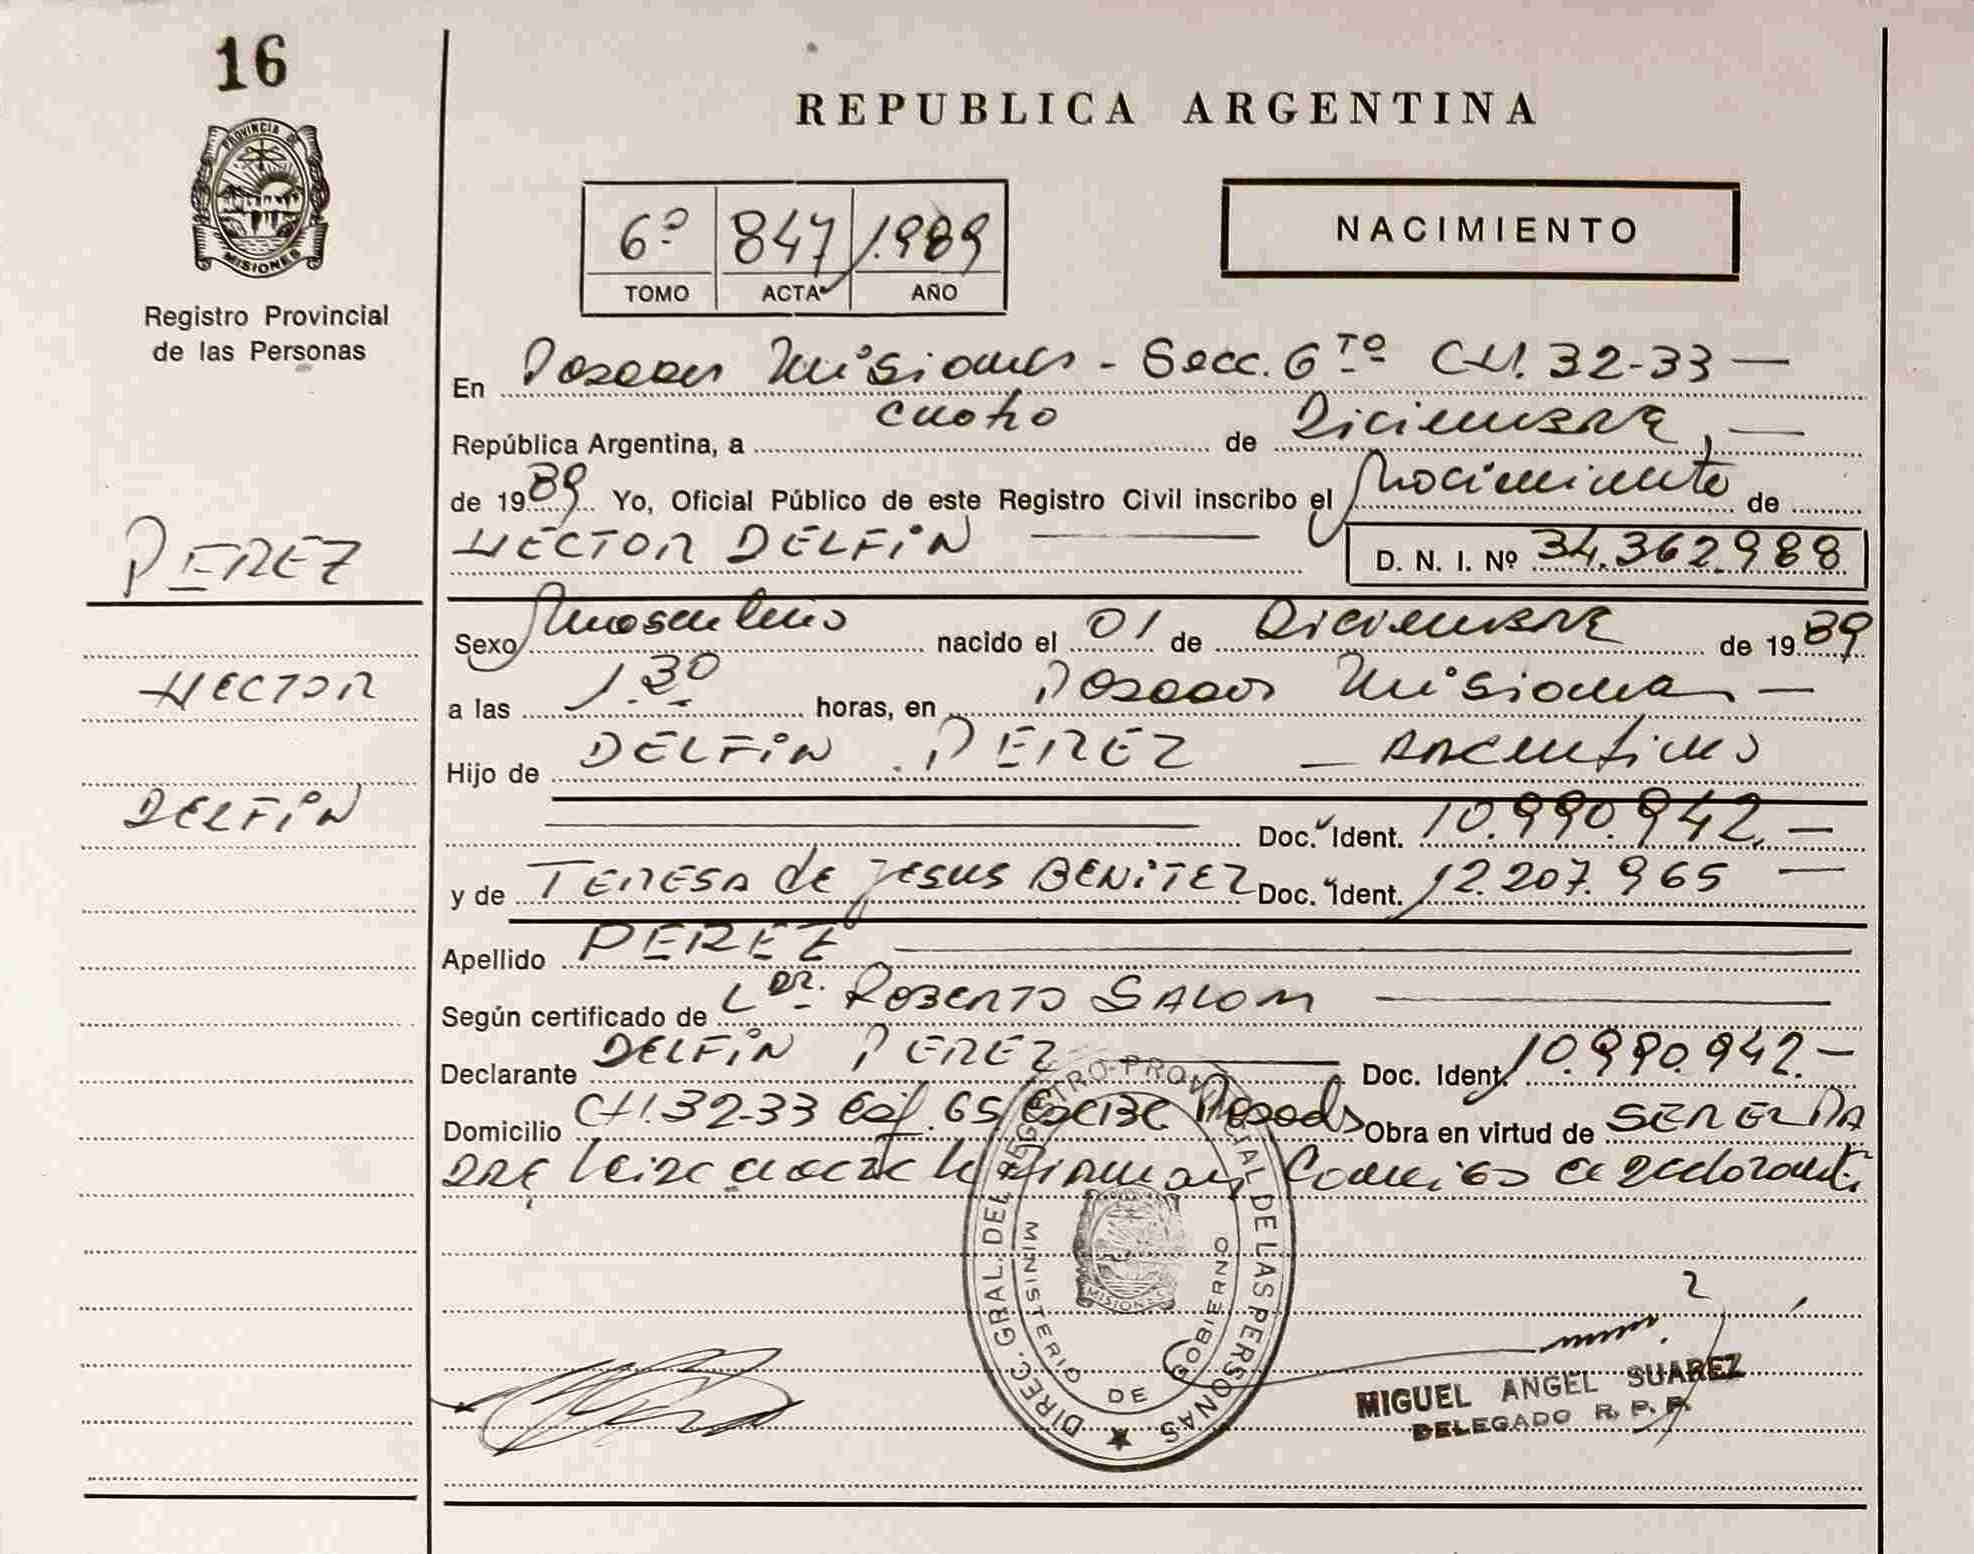 16
REPUBLICA ARGENTINA
PROVINCIA DE MISIONES
Registro Provincial
de las Personas
6º 847 1.989
TOMO ACTA AÑO
NACIMIENTO
En Posadas Misiones - Secc. 6 TO CH. 32-33 —
República Argentina, a cuatro de Diciembre, —
de 1989 Yo, Oficial Público de este Registro Civil inscribo el Nacimiento de
HECTOR DELFIN — D. N. I. Nº 34.362.988
PEREZ
HECTOR
DELFIN
Sexo Masculino nacido el 01 de Diciembre de 1989
a las 1.30 horas, en Posadas Misiones —
Hijo de DELFIN PEREZ — Argentino
Doc. Ident. 10.990.942. —
y de TERESA de JESUS BENITEZ Doc. Ident. 12.207.965 —
Apellido PEREZ
Según certificado de ROBERTO SALOM
Declarante DELFIN PEREZ Doc. Ident. 10.990.942. —
Domicilio CH. 32-33 65 Posadas Obra en virtud de SER EL PA
DRE
DIREC. GRAL. DEL REGISTRO PROVINCIAL DE LAS PERSONAS
MINISTERIO DE GOBIERNO
MISIONES
MIGUEL ANGEL SUAREZ
DELEGADO R. P. P.